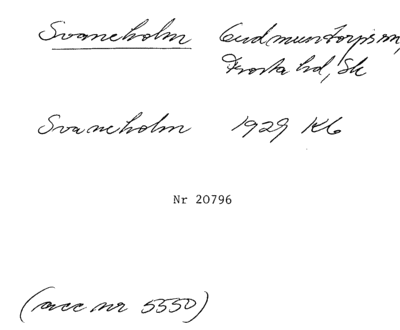 Svaneholm Gudmuntorps sn,
Frosta hd, Sk
Svaneholm 1929 K6
Nr 20796
(acc nr 5550)